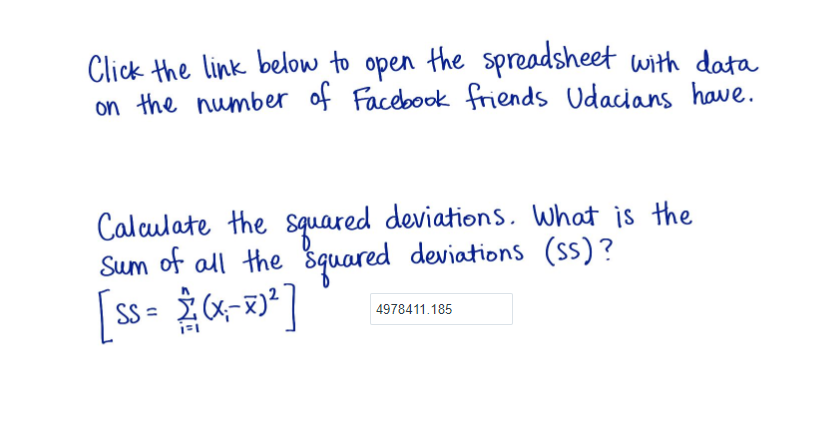 Click the link below to open the spreadsheet with data
on the number of Facebook friends Udacians have.
Calculate the squared deviations. What is the
sum of all the squared deviations (SS)?
[SS = Σⁿᵢ₌₁ (xᵢ-x̄)²]
4978411.185